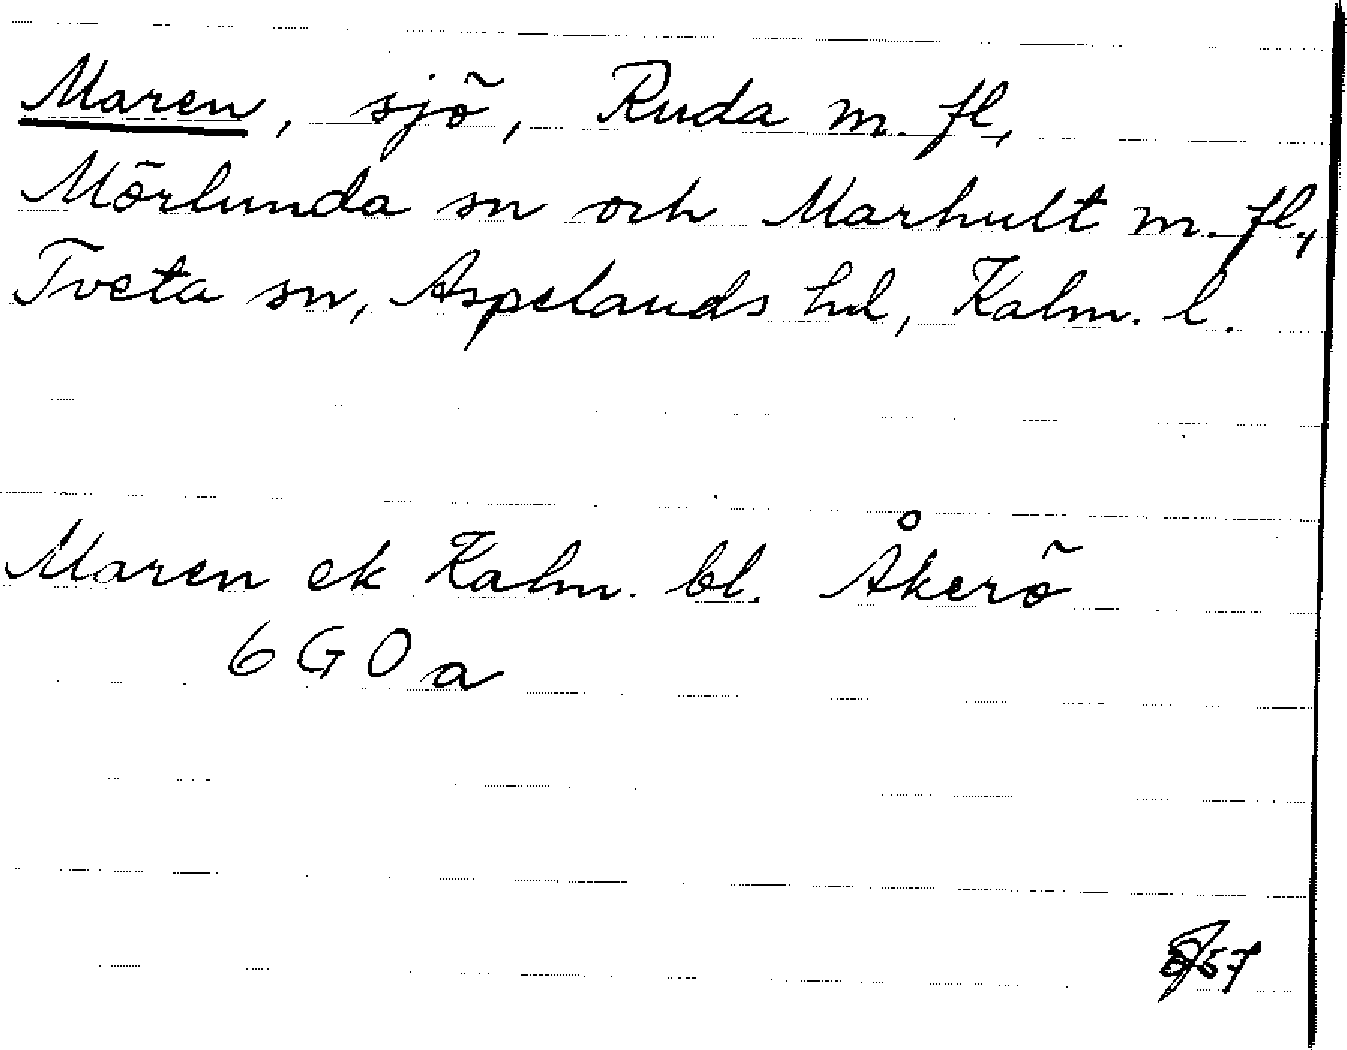 Maren, sjö, Ruda m. fl.,
Mörlunda sn och Marhult m. fl.,
Tveta sn, Aspelands hd, Kalm. l.
Maren ek Kalm. bl. Åkerö
6 G 0 a